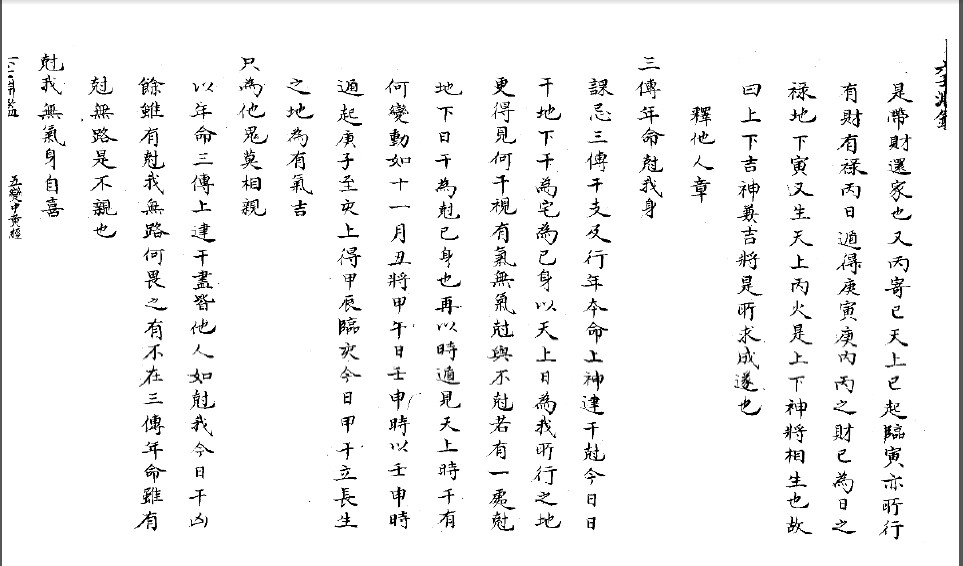 是帶財還家也又丙寄巳天上巳起臨寅亦所行
有財有祿丙日遁得庚寅庚內丙之財巳為日之
祿地下寅又生天上丙火是上下神將相生也故
曰上下吉神兼吉將是所求成遂也
釋他人章
三傳年命尅我身
課忌三傳干支及行年本命上神建干尅今日日
干地下干為宅為已身以天上日為我所行之地
更得見何干視有氣無氣尅與不尅若有一處尅
地下日干為尅已身也再以時遁見天上時干有
何變動如十一月丑將甲午日壬申時以壬申時
遁起庚子至亥上得甲辰臨亥今日甲干立長生
之地為有氣吉
只為他鬼莫相親
以年命三傳上建干盡皆他人如尅我今日干凶
餘雖有尅我無路何畏之有不在三傳年命雖有
尅無路是不親也
尅我無氣身自喜
五變中黃經